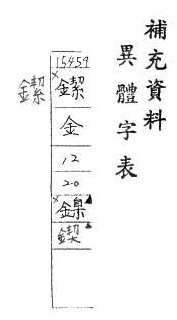 補充資料
異體字表
15459
×䥛
金
12
20
×鎳▲
鍥▲
䥛